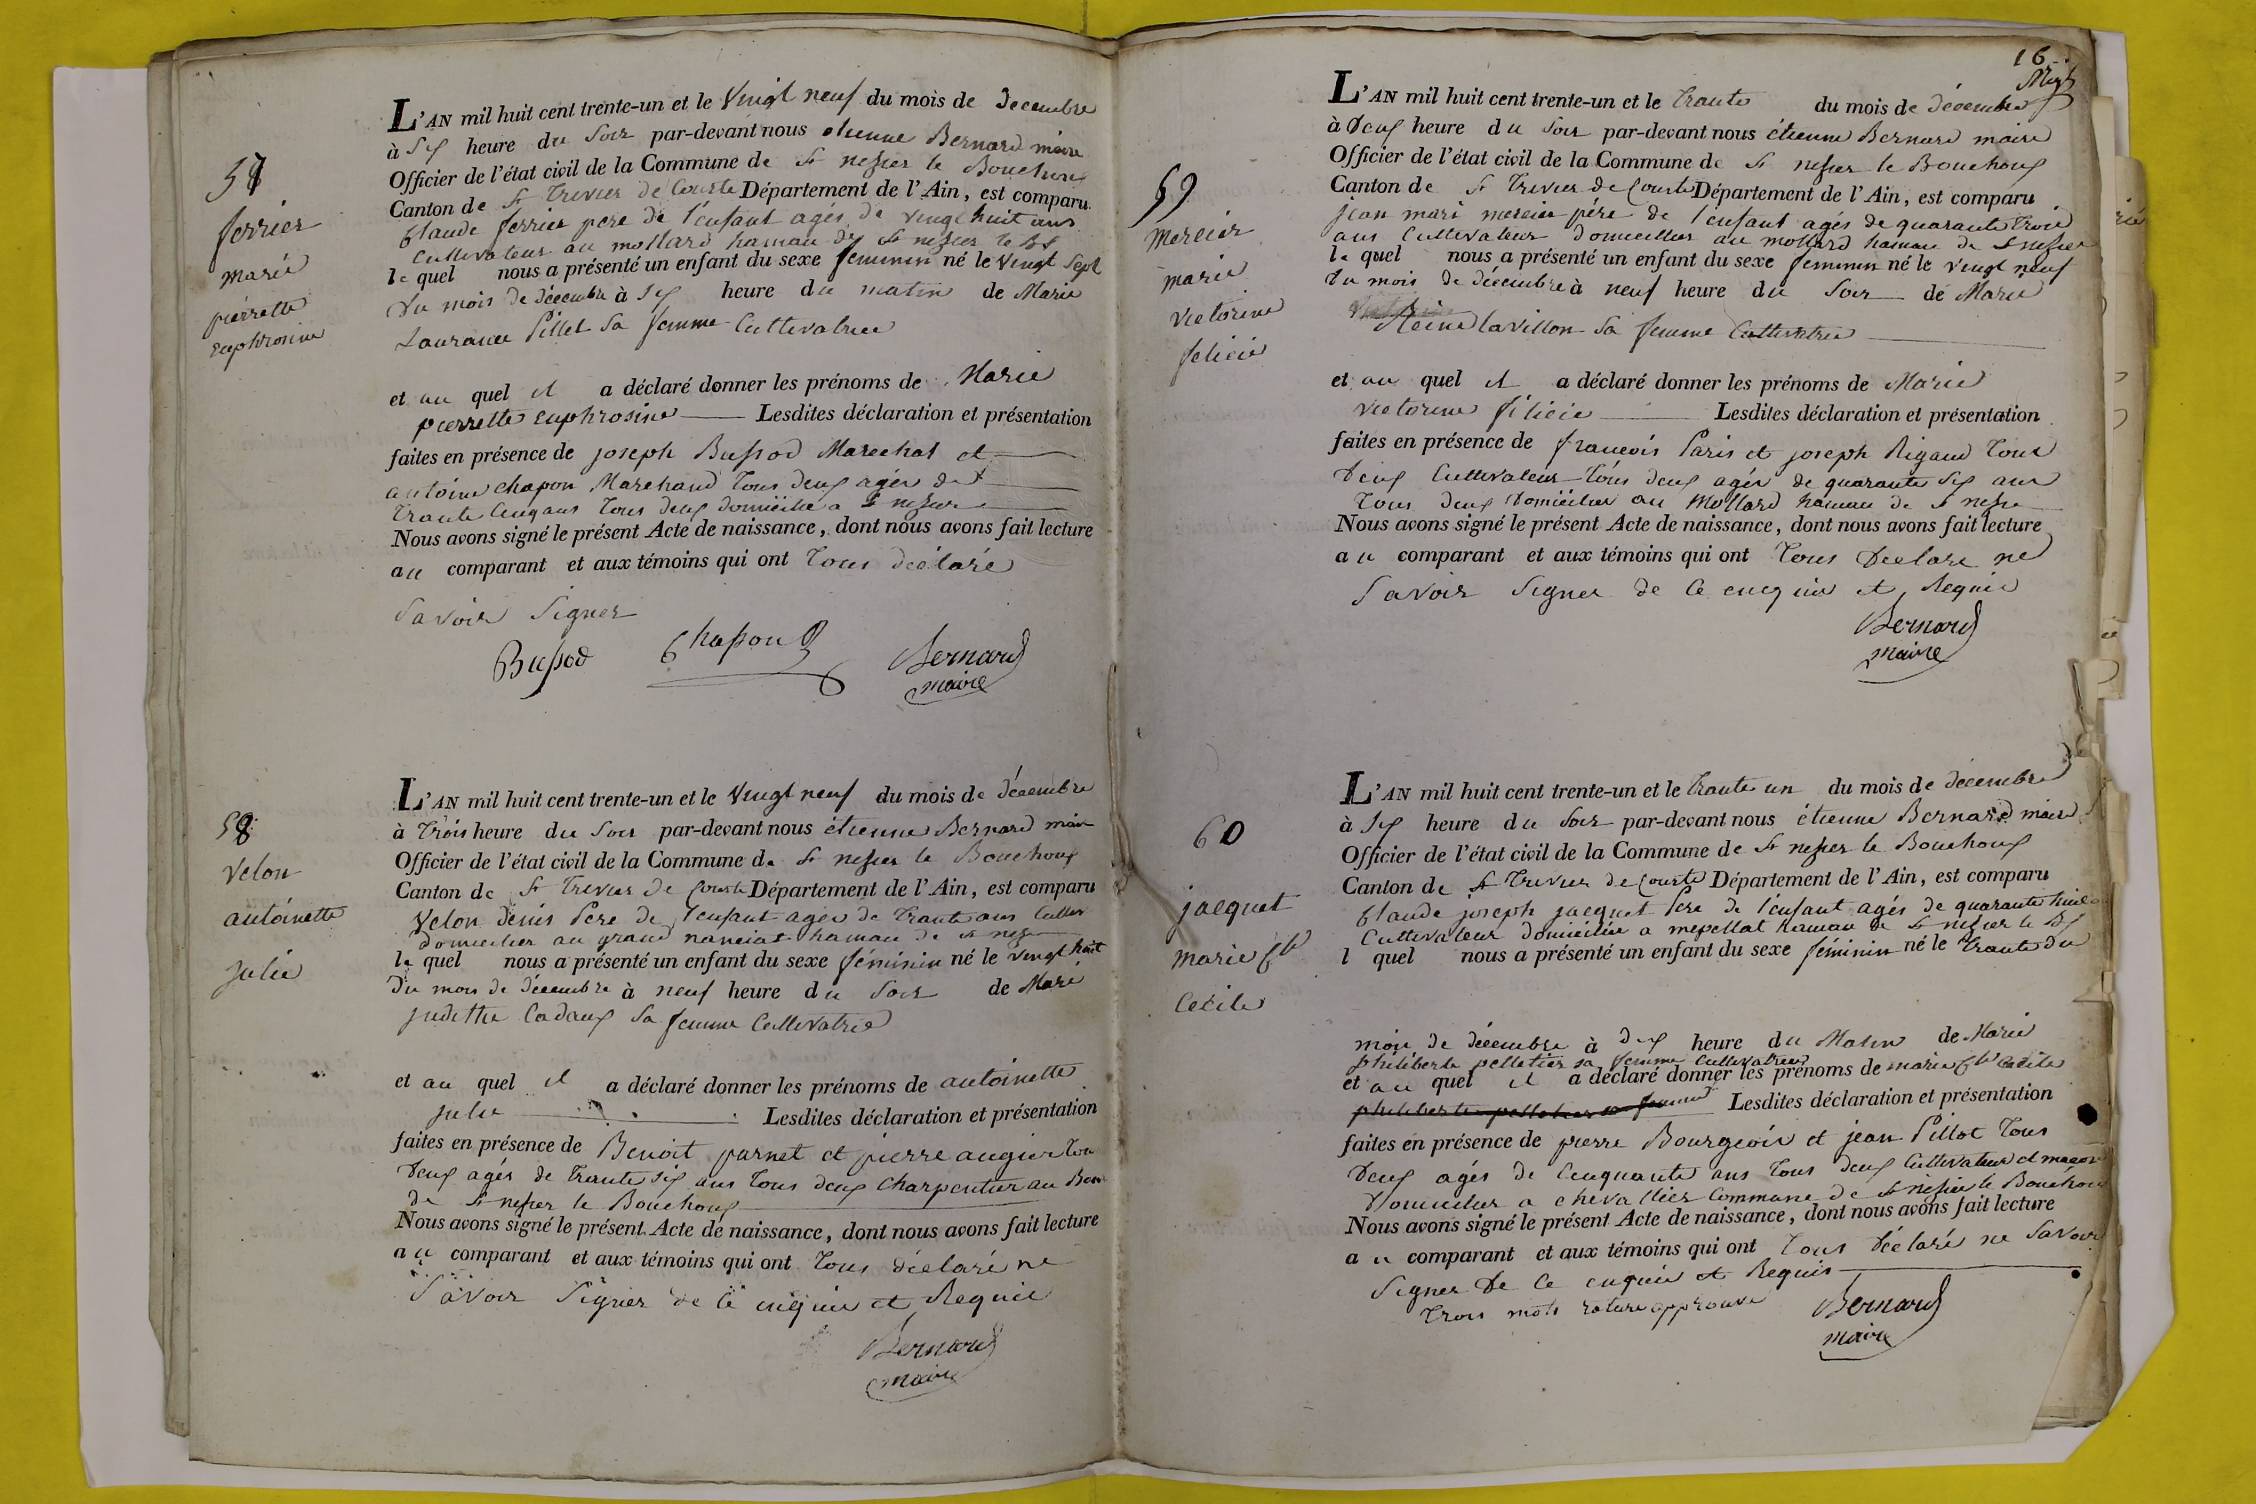 57
ferrier
marie
pierrette
euphrosine
L'AN mil huit cent trente-un et le Vingt neuf du mois de decembre
à Six heure du Soir par-devant nous etienne Bernard maire
Officier de l'état civil de la Commune de St nesier le Bouchoux
Canton de St Trevier de Courte Département de l'Ain, est comparu
Claude ferrier pere de l'enfant agés de vingt huit ans
Cultivateur au mollard hamau de St nesier le Bx
le quel nous a présenté un enfant du sexe feminin né le Vingt Sept
Du mois de décembre à Six heure du matin de Marie
Laurance Pillet Sa femme Cultivatrice
et au quel il a déclaré donner les prénoms de Marie
pierrette euphrosine Lesdites déclaration et présentation
faites en présence de joseph Bussod Marechal et
antoine chapon Marchand Tous deux agés de
Trante Cinq ans Tous deux domicilie a St nesier
Nous avons signé le présent Acte de naissance, dont nous avons fait lecture
au comparant et aux témoins qui ont Tous déclaré
Savoir Signer
Bussod Chapon Bernard
maire
58
Velon
antoinette
julie
L'AN mil huit cent trente-un et le Vingt neuf du mois de décembre
à Trois heure du Soir par-devant nous étienne Bernard maire
Officier de l'état civil de la Commune de St nesier le Bouchoux
Canton de St Trevier de Courte Département de l'Ain, est comparu
Velon denis Pere de l'enfant agés de Trante ans Cultiv
domicilier au grand nancias hamau de St nesier
le quel nous a présenté un enfant du sexe féminin né le vingt huit
Du mois de décembre à neuf heure du Soir de Mari
judithe Cadaux Sa femme Cultivatrice
et au quel il a déclaré donner les prénoms de antoinette
julie Lesdites déclaration et présentation
faites en présence de Benoit parnet et pierre augier Tou
Deux agés de Trante Six ans Tous deux Charpentier au Bou
de St nesier le Bouchoux
Nous avons signé le présent Acte de naissance, dont nous avons fait lecture
au comparant et aux témoins qui ont Tous déclaré ne
Savoir Signer de Ce enquie et Requie
Bernard
maire
16
59
mercier
marie
victorine
felicie
L'AN mil huit cent trente-un et le Trante du mois de décembre
à Deux heure du Soir par-devant nous étienne Bernard maire
Officier de l'état civil de la Commune de St nesier le Bouchoux
Canton de St Trevier de Courte Département de l'Ain, est comparu
jean mari mercier pére de l'enfant agés de quarante Trois
ans Cultivateur domicillier au mollard hamau de St nesier
le quel nous a présenté un enfant du sexe feminin né le Vingt neuf
Du mois de décembre à neuf heure du Soir de Marie
Reine lavillon Sa femme Cultivatrice
et au quel il a déclaré donner les prénoms de Marie
victorine félicie Lesdites déclaration et présentation
faites en présence de francois Paris et joseph Rigaud Tous
Deux Cultivateur Tous deux agés de quarante Six ans
Tous deux Domicilier au Mollard hamau de St nesier
Nous avons signé le présent Acte de naissance, dont nous avons fait lecture
au comparant et aux témoins qui ont Tous Déclare ne
Savoir Signer de Ce enquie et Requie
Bernard
maire
60
jacquet
marie Cte
Cecile
L'AN mil huit cent trente-un et le Trante un du mois de décembre
à Six heure du Soir par-devant nous étienne Bernard maire
Officier de l'état civil de la Commune de St nesier le Bouchoux
Canton de St Trevier de Courte Département de l'Ain, est comparu
Claude joseph jacquet Pere de l'enfant agés de quarante huit
Cultivateur domicilier a mepellat hamau de St nesier le Bx
l quel nous a présenté un enfant du sexe féminin né le Trante du
mois de décembre à dix heure du Matin de Marie
philiberte pelletier sa femme Cultivatrice
et au quel il a déclaré donner les prénoms de marie Cte Cecile
philiberte pelletier sa femme Lesdites déclaration et présentation
faites en présence de pierre Bourgeois et jean Pillot Tous
Deux agés de Cinquante ans Tous deux Cultivateur et macon
Domicilier a chevallier Commune de St nesier le Bouchoux
Nous avons signé le présent Acte de naissance, dont nous avons fait lecture
au comparant et aux témoins qui ont Tous Déclaré ne Savoir
Signer De Ce enquie et Requis
Trois mots rature approuvé Bernard
maire